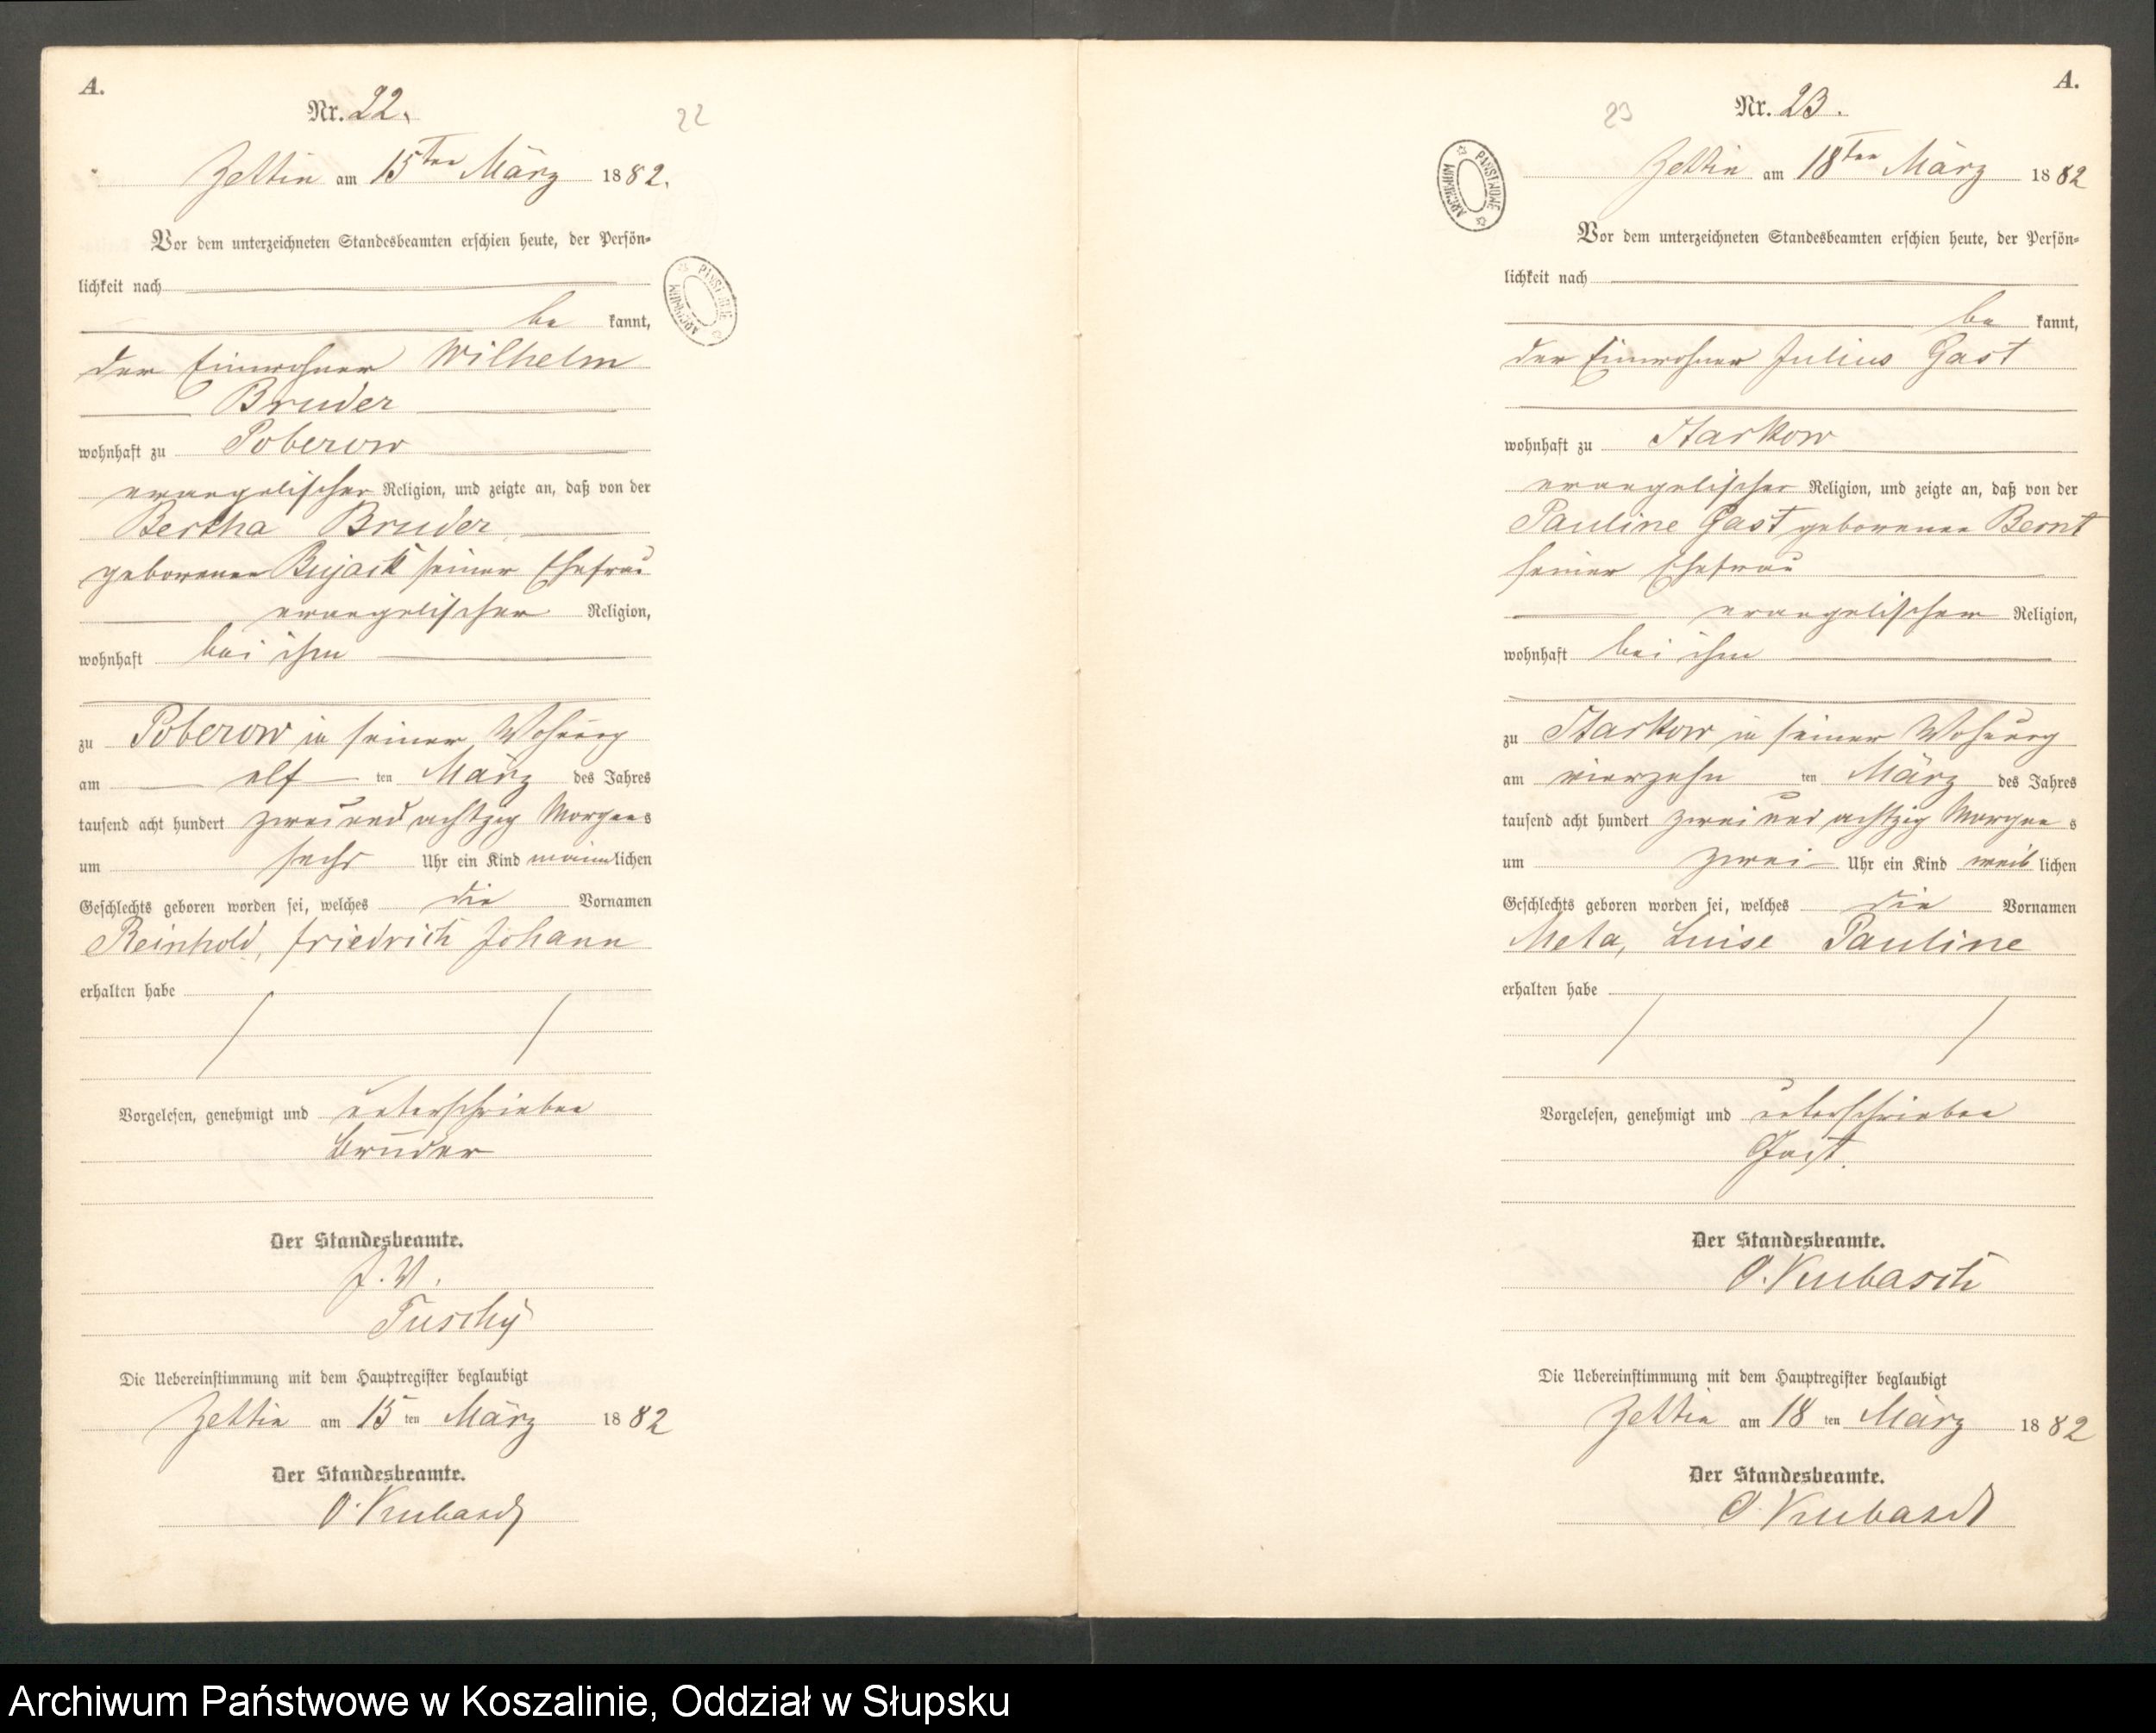 A.
Nr. 22.
22
Zettin am 15ten März 1882.
Vor dem unterzeichneten Standesbeamten erschien heute, der Persön-
lichkeit nach
be kannt,
der Einwohner Wilhelm
Bruder
wohnhaft zu Poberow
evangelischer Religion, und zeigte an, daß von der
Bertha Bruder
geborenen Bujack seiner Ehefrau
evangelischer Religion,
wohnhaft bei ihm
zu Poberow in seiner Wohnung
am elf ten März des Jahres
tausend acht hundert zwei und achtzig Morgens
um sechs Uhr ein Kind männlichen
Geschlechts geboren worden sei, welches die Vornamen
Reinhold, Friedrich Johann
erhalten habe
Vorgelesen, genehmigt und unterschrieben
Bruder
Der Standesbeamte.
J. V.
Tuschy
Die Uebereinstimmung mit dem Hauptregister beglaubigt
Zettin am 15 ten März 1882
Der Standesbeamte.
O.
ARCHIWUM PAŃSTWOWE
A.
Nr. 23.
23
Zettin am 18ten März 1882
Vor dem unterzeichneten Standesbeamten erschien heute, der Persön-
lichkeit nach
be kannt,
der Einwohner Julius Gast
wohnhaft zu Starkow
evangelischer Religion, und zeigte an, daß von der
Pauline Gast geborenen Bernt
seiner Ehefrau
evangelischer Religion,
wohnhaft bei ihm
zu Starkow in seiner Wohnung
am vierzehn ten März des Jahres
tausend acht hundert zwei und achtzig Morgens
um zwei Uhr ein Kind weiblichen
Geschlechts geboren worden sei, welches die Vornamen
Meta, Luise Pauline
erhalten habe
Vorgelesen, genehmigt und unterschrieben
Gast.
Der Standesbeamte.
O.
Die Uebereinstimmung mit dem Hauptregister beglaubigt
Zettin am 18 ten März 1882
Der Standesbeamte.
O.
ARCHIWUM PAŃSTWOWE
Archiwum Państwowe w Koszalinie, Oddział w Słupsku